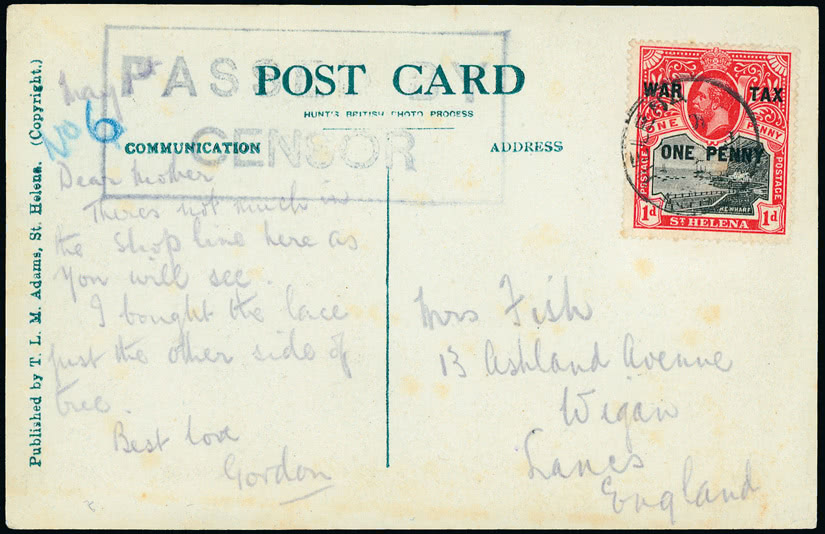 PASSED BY
CENSOR
POST CARD
HUNT'S BRITISH PHOTO PROCESS
COMMUNICATION
ADDRESS
Published by T. L. M. Adams, St. Helena. (Copyright.)
May
No 6
Dear Mother
Theres not much in
the shop line here as
you will see.
I bought the lace
just the other side of
tree.
Best love
Gordon
Mrs Fish
13 Ashland Avenue
Wigan
Lancs
England
WAR TAX
ONE PENNY
ONE PENNY
POSTAGE
POSTAGE
1d ST HELENA 1d